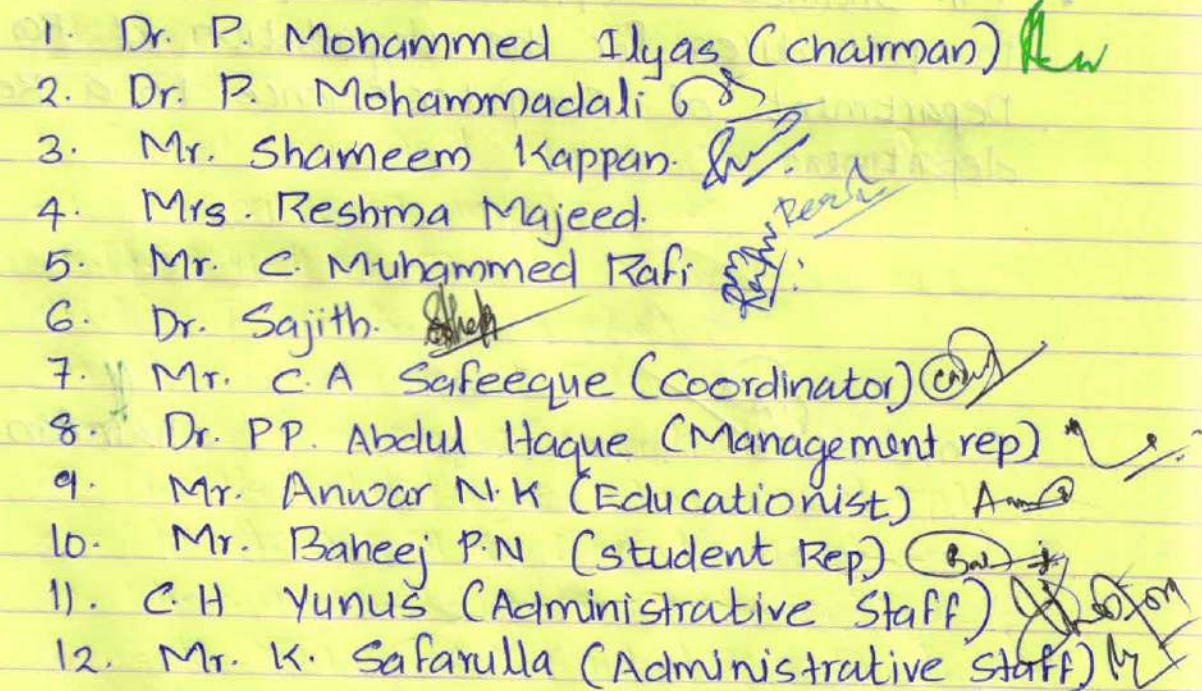 1. Dr. P. Mohammed Ilyas (chairman)
2. Dr. P. Mohammadali
3. Mr. Shameem Kappan.
4. Mrs. Reshma Majeed.
5. Mr. C. Muhammed Rafi
6. Dr. Sajith.
7. Mr. C.A Safeeque (coordinator)
8. Dr. PP. Abdul Haque (Management rep)
9. Mr. Anwar N.K (Educationist)
10. Mr. Baheej P.N (student Rep)
11. C.H Yunus (Administrative Staff)
12. Mr. K. Safarulla (Administrative staff)